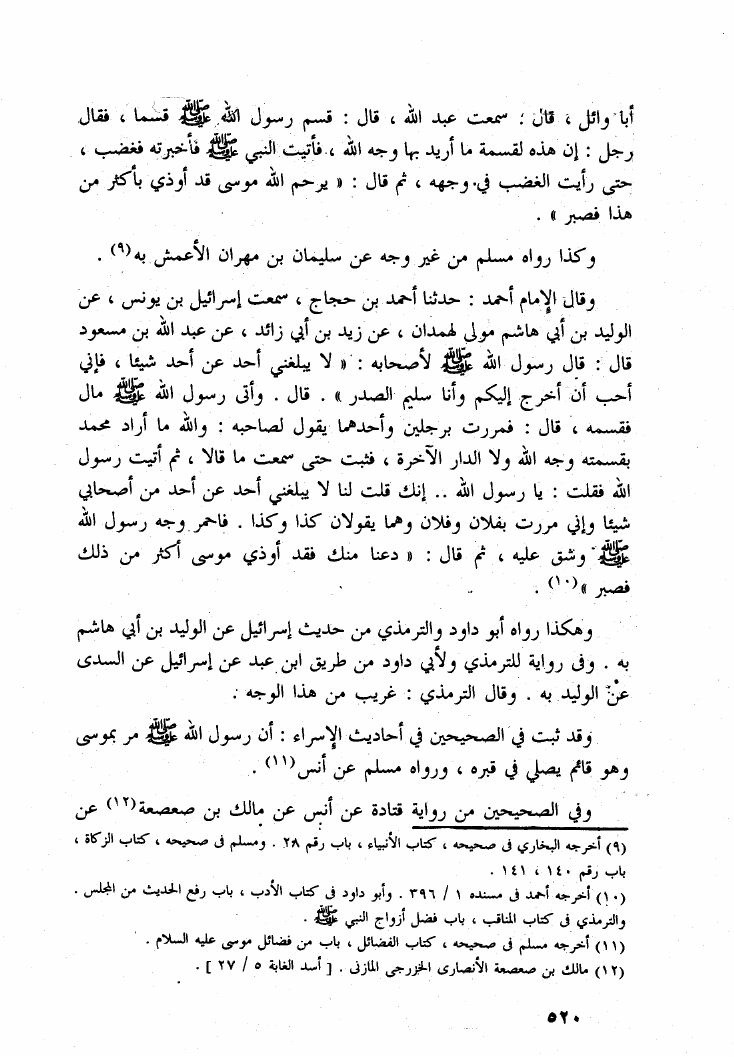 أبا وائل ، قال : سمعت عبد الله ، قال : قسم رسول الله ﷺ قسما ، فقال
رجل : إن هذه لقسمة ما أريد بها وجه الله ، فأتيت النبي ﷺ فأخبرته فغضب ،
حتى رأيت الغضب في وجهه ، ثم قال : « يرحم الله موسى قد أوذي بأكثر من
هذا فصبر » .
وكذا رواه مسلم من غير وجه عن سليمان بن مهران الأعمش به(٩) .
وقال الإمام أحمد : حدثنا أحمد بن حجاج ، سمعت إسرائيل بن يونس ، عن
الوليد بن أبي هاشم مولى لهمدان ، عن زيد بن أبي زائد ، عن عبد الله بن مسعود
قال : قال رسول الله ﷺ لأصحابه : « لا يبلغني أحد عن أحد شيئا ، فإني
أحب أن أخرج إليكم وأنا سليم الصدر » . قال . وأتى رسول الله ﷺ مال
فقسمه ، قال : فمررت برجلين وأحدهما يقول لصاحبه : والله ما أراد محمد
بقسمته وجه الله ولا الدار الآخرة ، فثبت حتى سمعت ما قالا ، ثم أتيت رسول
الله فقلت : يا رسول الله .. إنك قلت لنا لا يبلغني أحد عن أحد من أصحابي
شيئا وإني مررت بفلان وفلان وهما يقولان كذا وكذا . فاحمر وجه رسول الله
ﷺ وشق عليه ، ثم قال : « دعنا منك فقد أوذي موسى أكثر من ذلك
فصبر »(١٠) .
وهكذا رواه أبو داود والترمذي من حديث إسرائيل عن الوليد بن أبي هاشم
به . وفى رواية للترمذي ولأبي داود من طريق ابن عبد عن إسرائيل عن السدى
عن الوليد به . وقال الترمذي : غريب من هذا الوجه .
وقد ثبت في الصحيحين في أحاديث الإسراء : أن رسول الله ﷺ مر بموسى
وهو قائم يصلي في قبره ، ورواه مسلم عن أنس(١١) .
وفي الصحيحين من رواية قتادة عن أنس عن مالك بن صعصعة(١٢) عن
(٩) أخرجه البخاري فى صحيحه ، كتاب الأنبياء ، باب رقم ٢٨ . ومسلم فى صحيحه ، كتاب الزكاة ،
باب رقم ١٤٠ ، ١٤١ .
(١٠) أخرجه أحمد فى مسنده ١ / ٣٩٦ . وأبو داود فى كتاب الأدب ، باب رفع الحديث من المجلس .
والترمذي فى كتاب المناقب ، باب فضل أزواج النبي ﷺ .
(١١) أخرجه مسلم فى صحيحه ، كتاب الفضائل ، باب من فضائل موسى عليه السلام .
(١٢) مالك بن صعصعة الأنصارى الخزرجى المازنى . [ أسد الغابة ٥ / ٢٧ ] .
٥٢٠